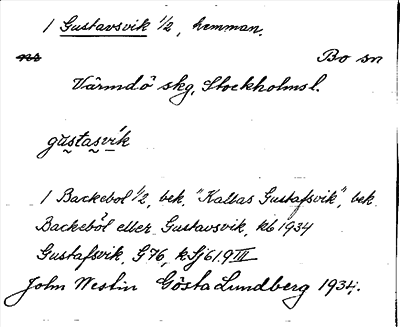 1 Gustavsvik 1/2, hemman.
ns Bo sn
Värmdö skg, Stockholms l.
gustasvik
1 Backebol 1/2, bek. "Kallas Gustafsvik", bek.
Backeböl eller Gustavsvik, kb 1934
Gustafsvik, G76, kSj61.9 III
John Westin Gösta Lundberg 1934.